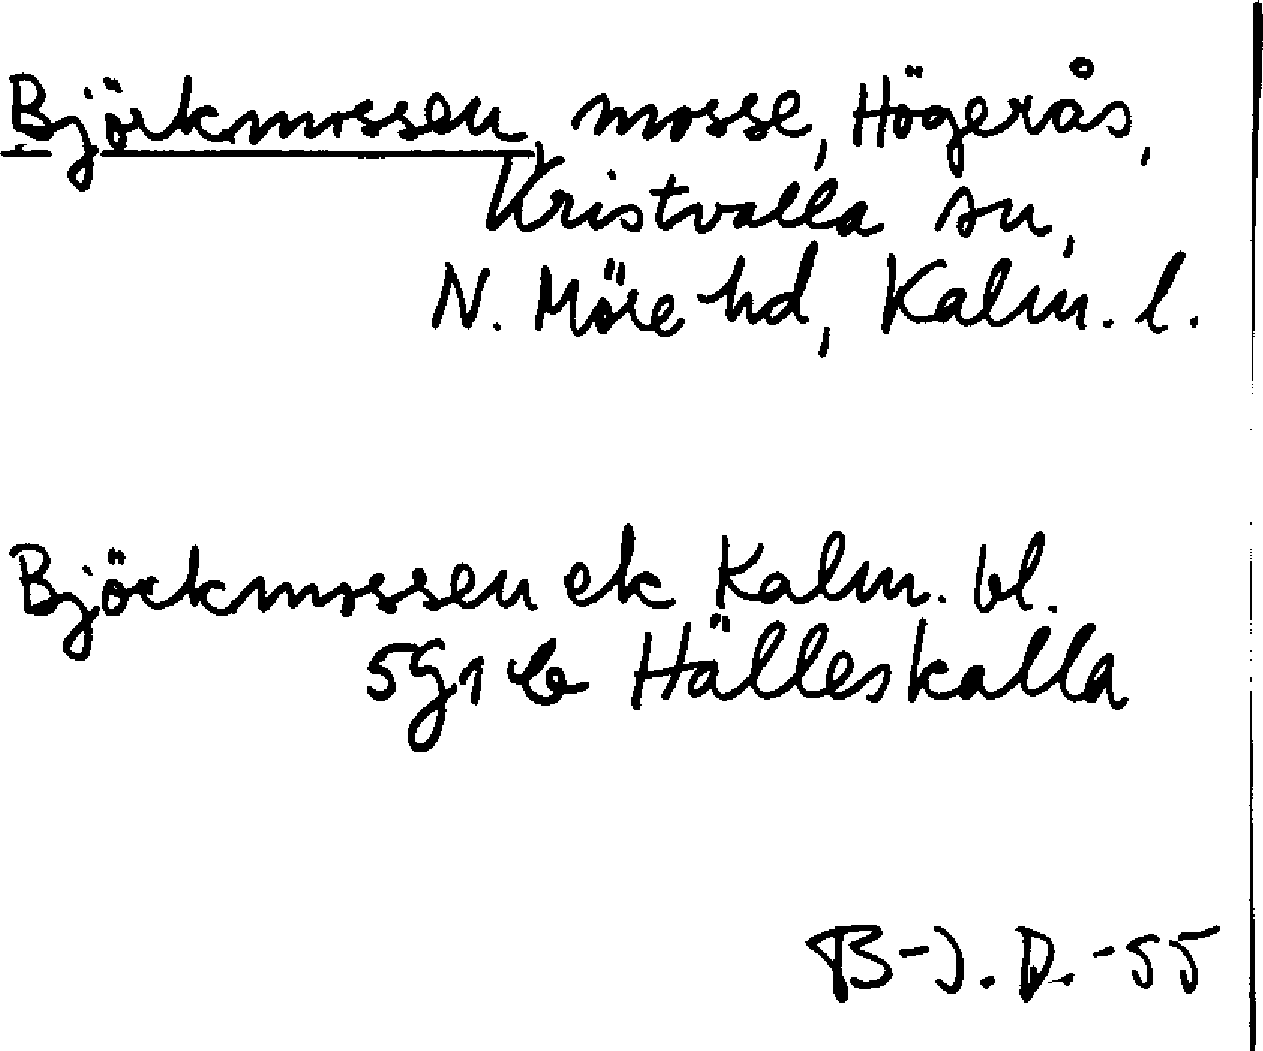 Björkmossen, mosse, Högerås,
Kristvalla sn,
N. Möre hd, Kalm. l.
Björkmossen ek Kalm. bl.
5g1b Hälleskalla
B-J. D. -55